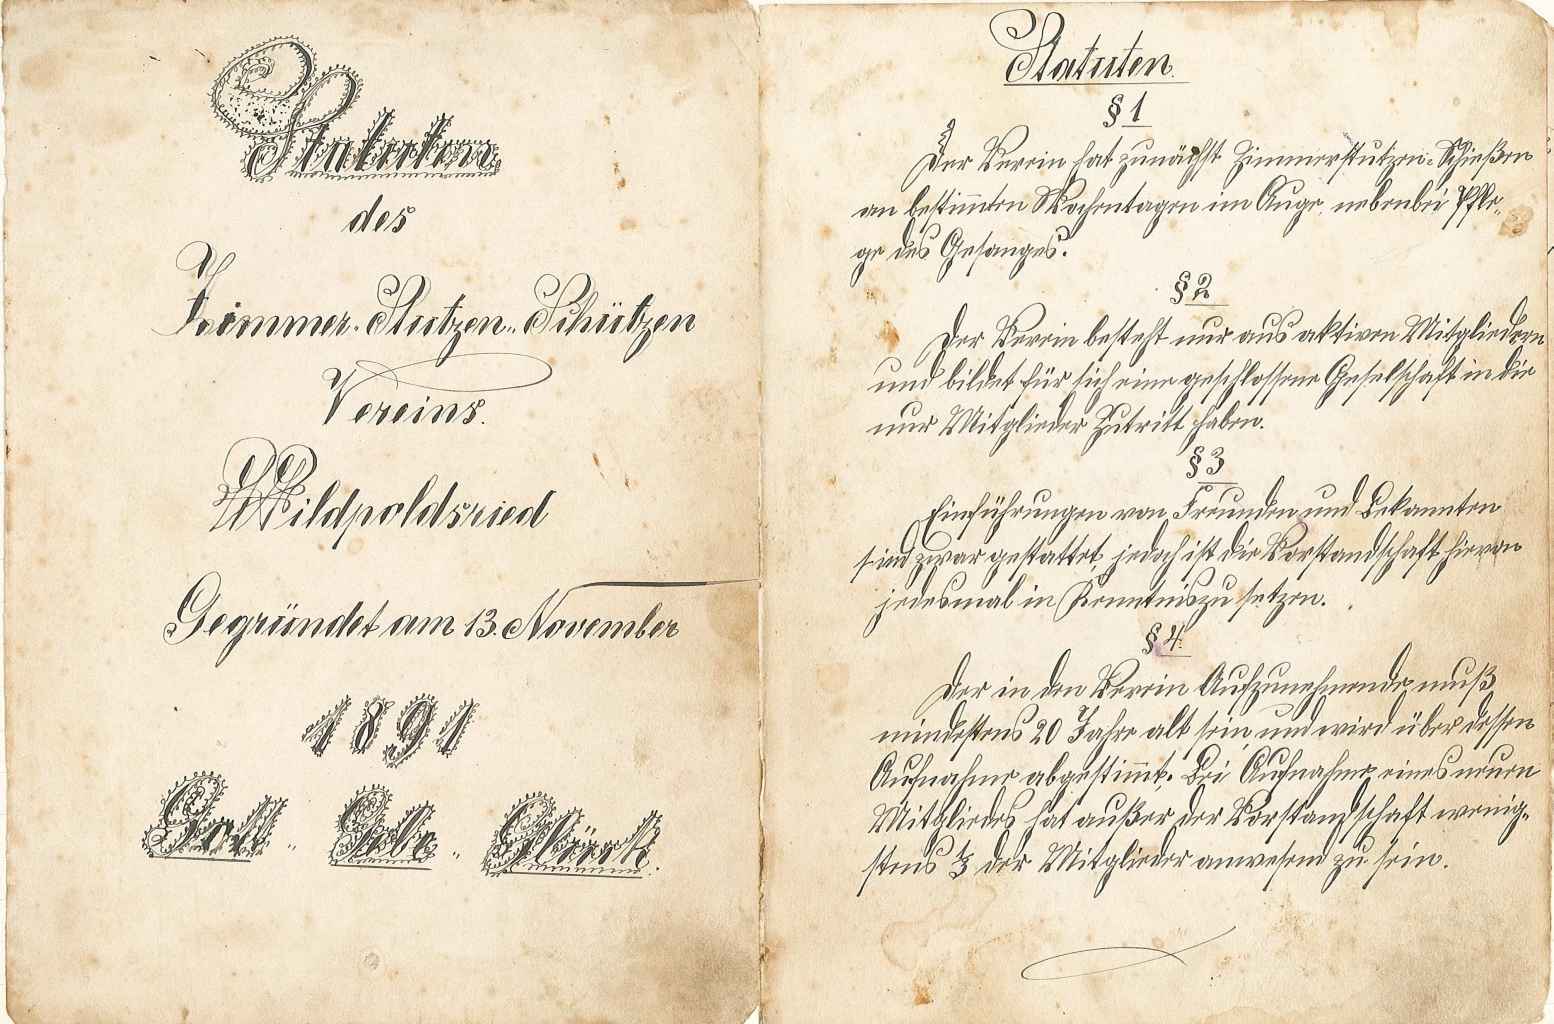 Statuten
des
Zimmer-Stutzen-Schützen
Vereins.
Wildpoldsried
Gegründet am 13. November
1891
Gott - Geb - Glück.
Statuten.
§ 1
Der Verein hat zunächst Zimmerstutzen-Schießen
an bestimmten Wochentagen im Auge, nebenbei Pfle-
ge des Gesanges.
§ 2
Der Verein besteht nur aus aktiven Mitgliedern
und bildet für sich eine geschlossene Geselschaft in die
nur Mitglieder Zutritt haben.
§ 3
Einführungen von Freunden und Bekannten
sind zwar gestattet, jedoch ist die Vorstandschaft hievon
jedesmal in Kenntnis zu setzen.
§ 4.
Der in den Verein Aufzunehmende muß
mindestens 20 Jahre alt sein und wird über dessen
Aufnahme abgestimmt. Bei Aufnahme eines neuen
Mitgliedes hat außer der Vorstandschaft wenig-
stens ⅓ der Mitglieder anwesend zu sein.